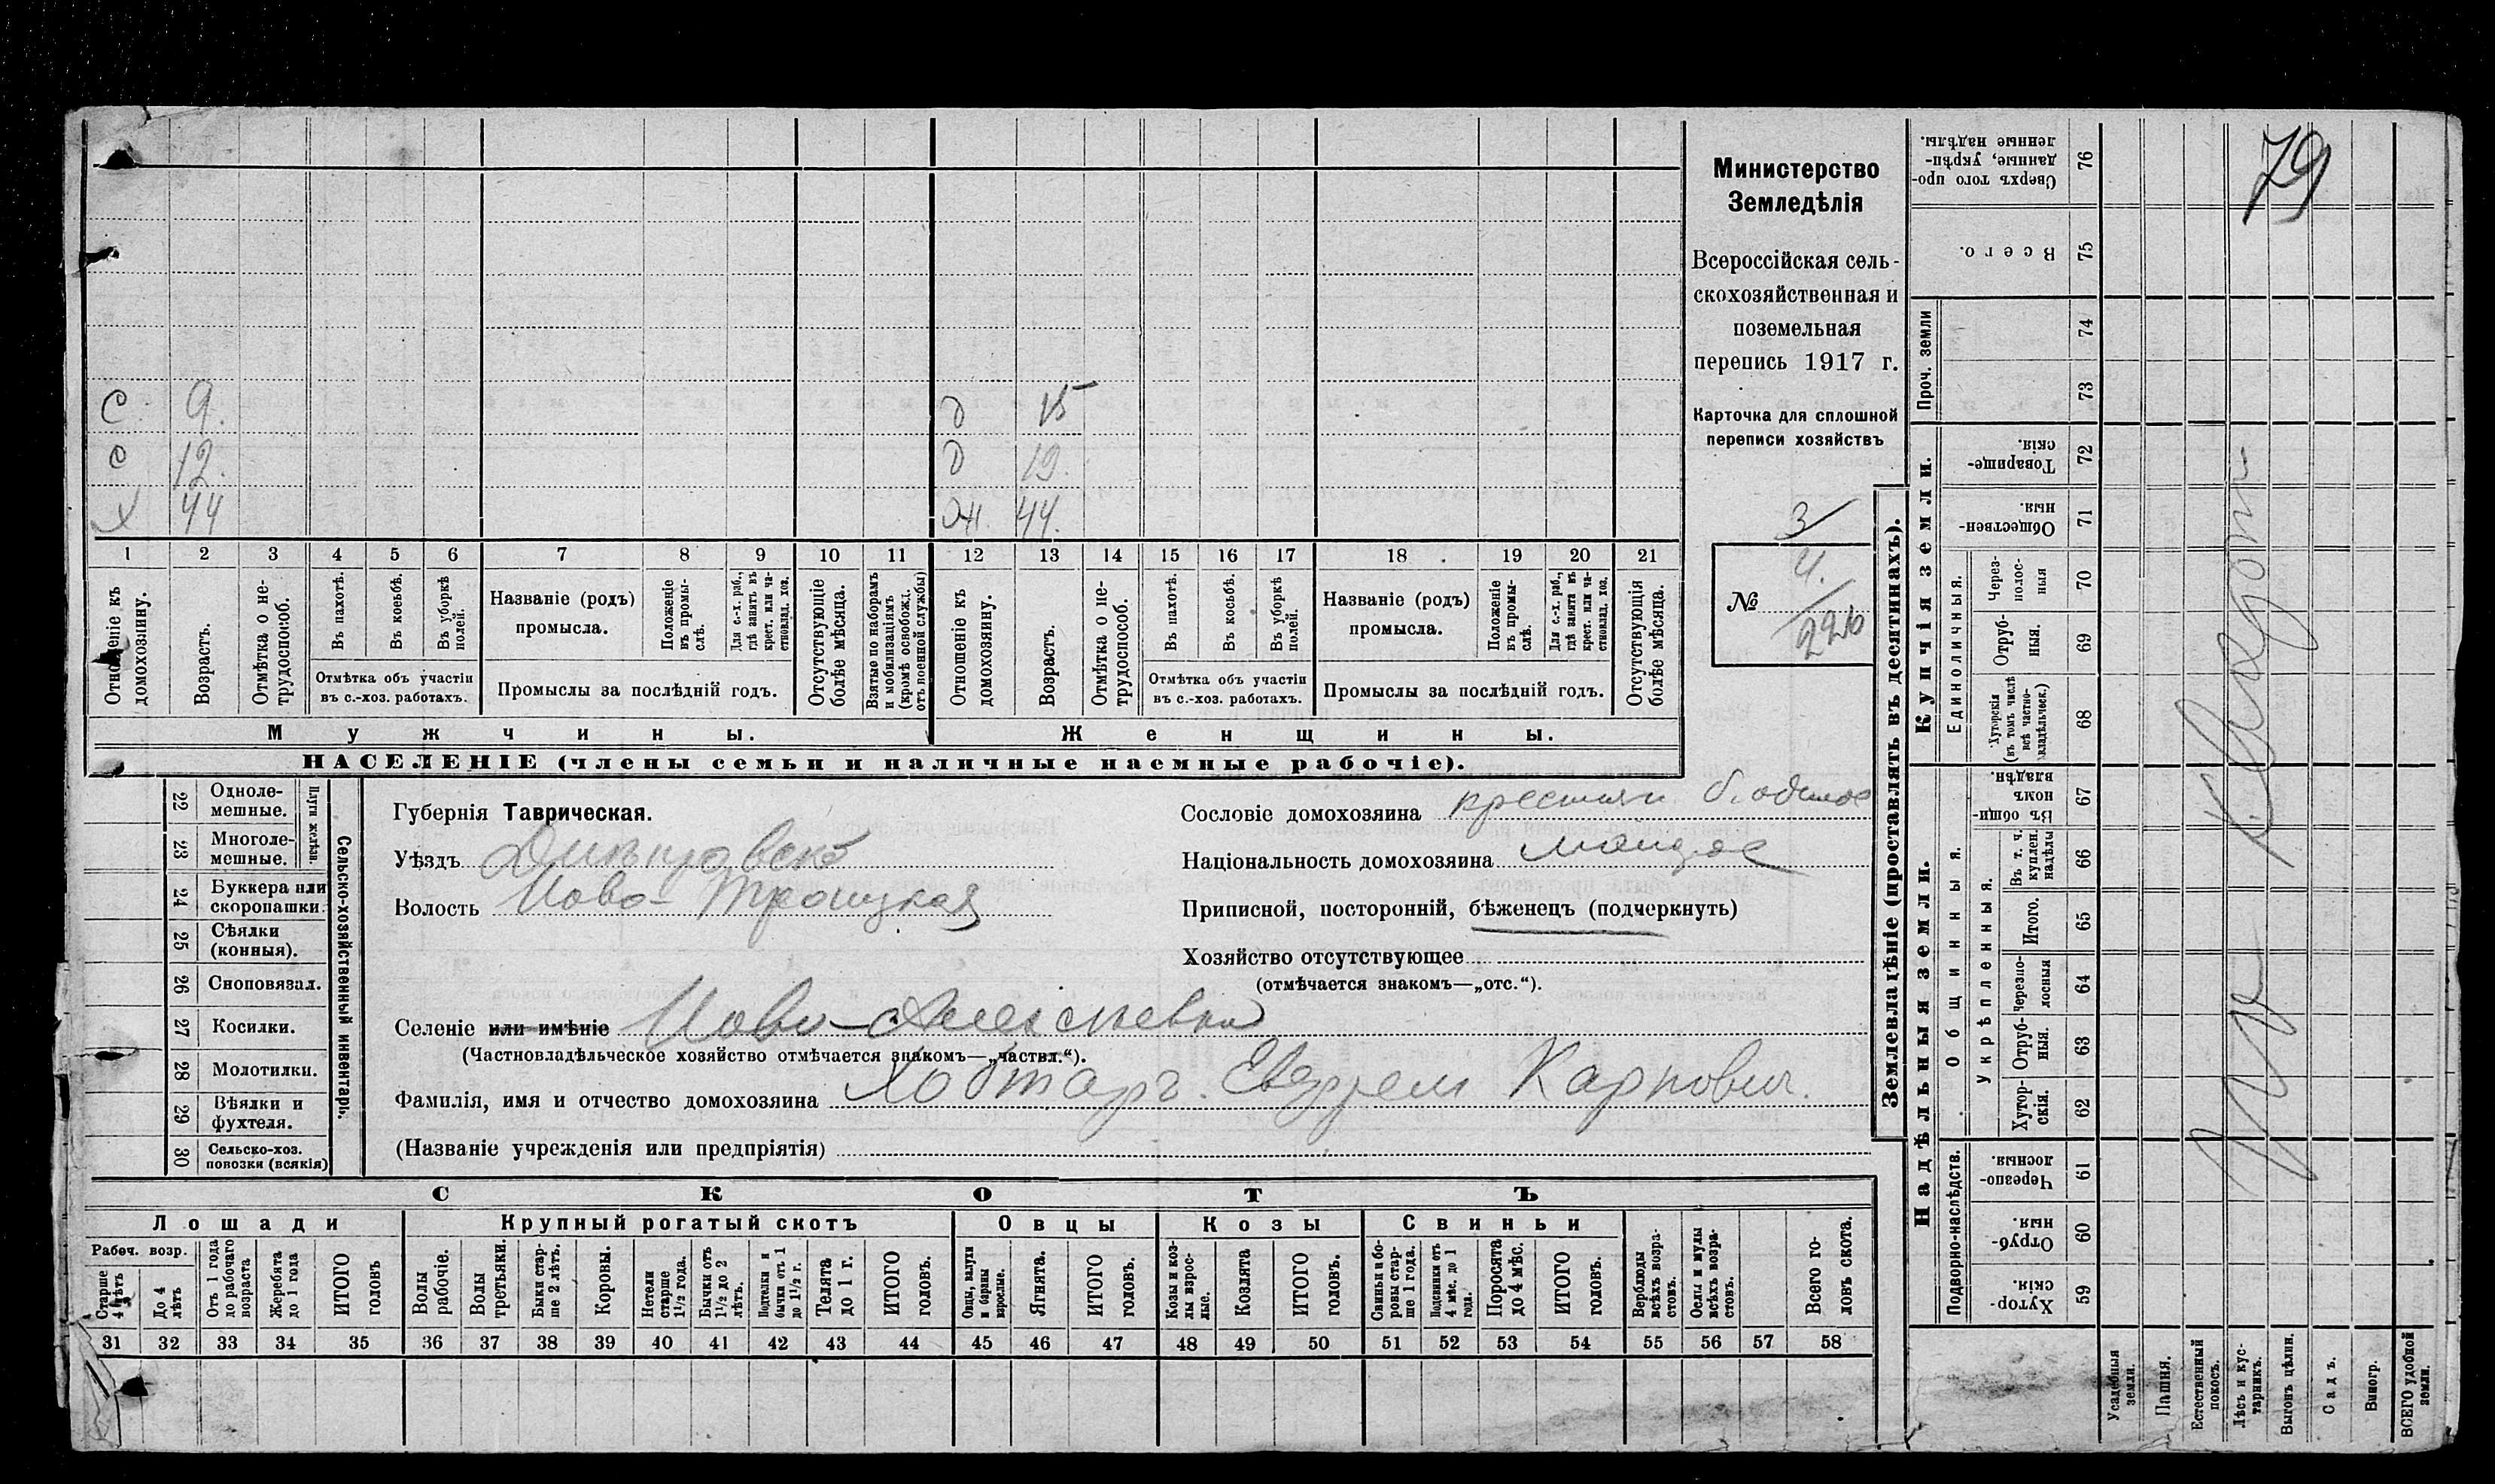 79
Министерство
Земледѣлія
Всероссійская сель-
скохозяйственная и
поземельная
перепись 1917 г.
Карточка для сплошной
переписи хозяйствъ
3
№ 4. 226
С 9. д 15
с 12. д 19.
Х 44 Ж. 44.
1 2 3 4 5 6 7 8 9 10 11 12 13 14 15 16 17 18 19 20 21
Отношеніе къ домохозяину.
Возрастъ.
Отмѣтка о не-трудоспособ.
Въ пахотѣ.
Въ косьбѣ.
Въ уборкѣ полей.
Отмѣтка объ участіи
въ с.-хоз. работахъ.
Названіе (родъ)
промысла.
Положеніе въ промы-слѣ.
Для с.-х. раб., гдѣ занятъ въ крест. или ча-стновлад. хоз.
Промыслы за послѣдній годъ.
Отсутствующіе болѣе мѣсяца.
Взятые по наборамъ и мобилизаціямъ (кромѣ освобожд. отъ военной службы)
Отношеніе къ домохозяину.
Возрастъ.
Отмѣтка о не-трудоспособ.
Въ пахотѣ.
Въ косьбѣ.
Въ уборкѣ полей.
Отмѣтка объ участіи
въ с.-хоз. работахъ.
Названіе (родъ)
промысла.
Положеніе въ промы-слѣ.
Для с.-х. раб., гдѣ занята въ крест. или ча-стновлад. хоз.
Промыслы за послѣдній годъ.
Отсутствующія болѣе мѣсяца.
Мужчины. Женщины.
НАСЕЛЕНІЕ (члены семьи и наличные наемные рабочіе).
Сельско-хозяйственный инвентарь.
Плуги желѣзн.
22 Одноле-мешные.
23 Многоле-мешные.
24 Буккера или скоропашки.
25 Сѣялки (конныя).
26 Сноповязал.
27 Косилки.
28 Молотилки.
29 Вѣялки и фухтеля.
30 Сельско-хоз. повозки (всякія)
Губернія Таврическая.
Уѣздъ Днѣпровскій
Волость Ново-Троицкая
Сословіе домохозяина крестьян.
Національность домохозяина
Приписной, посторонній, бѣженецъ (подчеркнуть)
Хозяйство отсутствующее
(отмѣчается знакомъ—„отс.“).
Селеніе или имѣніе Ново-Алексѣевка
(Частновладѣльческое хозяйство отмѣчается знакомъ—„частвл.“).
Фамилія, имя и отчество домохозяина Карпович.
(Названіе учрежденія или предпріятія)
СКОТЪ
Лошади Крупный рогатый скотъ Овцы Козы Свиньи
Рабоч. возр.
Старше 4 лѣтъ
До 4 лѣтъ
Отъ 1 года до рабочаго возраста
Жеребята до 1 года
ИТОГО головъ
Волы рабочіе.
Волы третьяки.
Быки стар-ше 2 лѣтъ.
Коровы.
Нетели старше 1½ года.
Бычки отъ 1½ до 2 лѣтъ.
Подтелки и бычки отъ 1 до 1½ г.
Телята до 1 г.
ИТОГО головъ.
Овцы, валухи и бараны взрослые.
Ягнята.
ИТОГО головъ.
Козы и коз-лы взрос-лые.
Козлята
ИТОГО головъ.
Свиньи и бо-ровы стар-ше 1 года.
Подсвинки отъ 4 мѣс. до 1 года.
Поросята до 4 мѣс.
ИТОГО головъ.
Верблюды всѣхъ возра-стовъ.
Ослы и мулы всѣхъ возра-стовъ.
Всего го-ловъ скота.
31 32 33 34 35 36 37 38 39 40 41 42 43 44 45 46 47 48 49 50 51 52 53 54 55 56 57 58
Землевладѣніе (проставлять въ десятинахъ).
Надѣльныя земли.
Купчія земли.
Проч. земли
Подворно-наслѣдств.
Общинныя.
Укрѣпленныя.
Единоличныя.
Сверхъ того про-данные, укрѣп-ленные надѣлы. 76
Всего. 75
74
73
Товарище-скія. 72
Обществен-ныя. 71
Через-полос-ныя 70
Отруб-ныя. 69
Хуторскія (въ томъ числѣ всѣ частно-владѣльческ.) 68
Въ общи-номъ владѣн. 67
Въ т. ч. куплен. надѣлы 66
Итого. 65
Черезпо-лосныя 64
Отруб-ныя. 63
Хутор-скія. 62
Черезпо-лосныя. 61
Отруб-ныя. 60
Хутор-скія. 59
Усадебныя земли.
Пашня.
Естественный покосъ.
Лѣсъ и кус-тарникъ.
Выгонъ цѣлин.
Садъ.
Виногр.
ВСЕГО удобной земли.